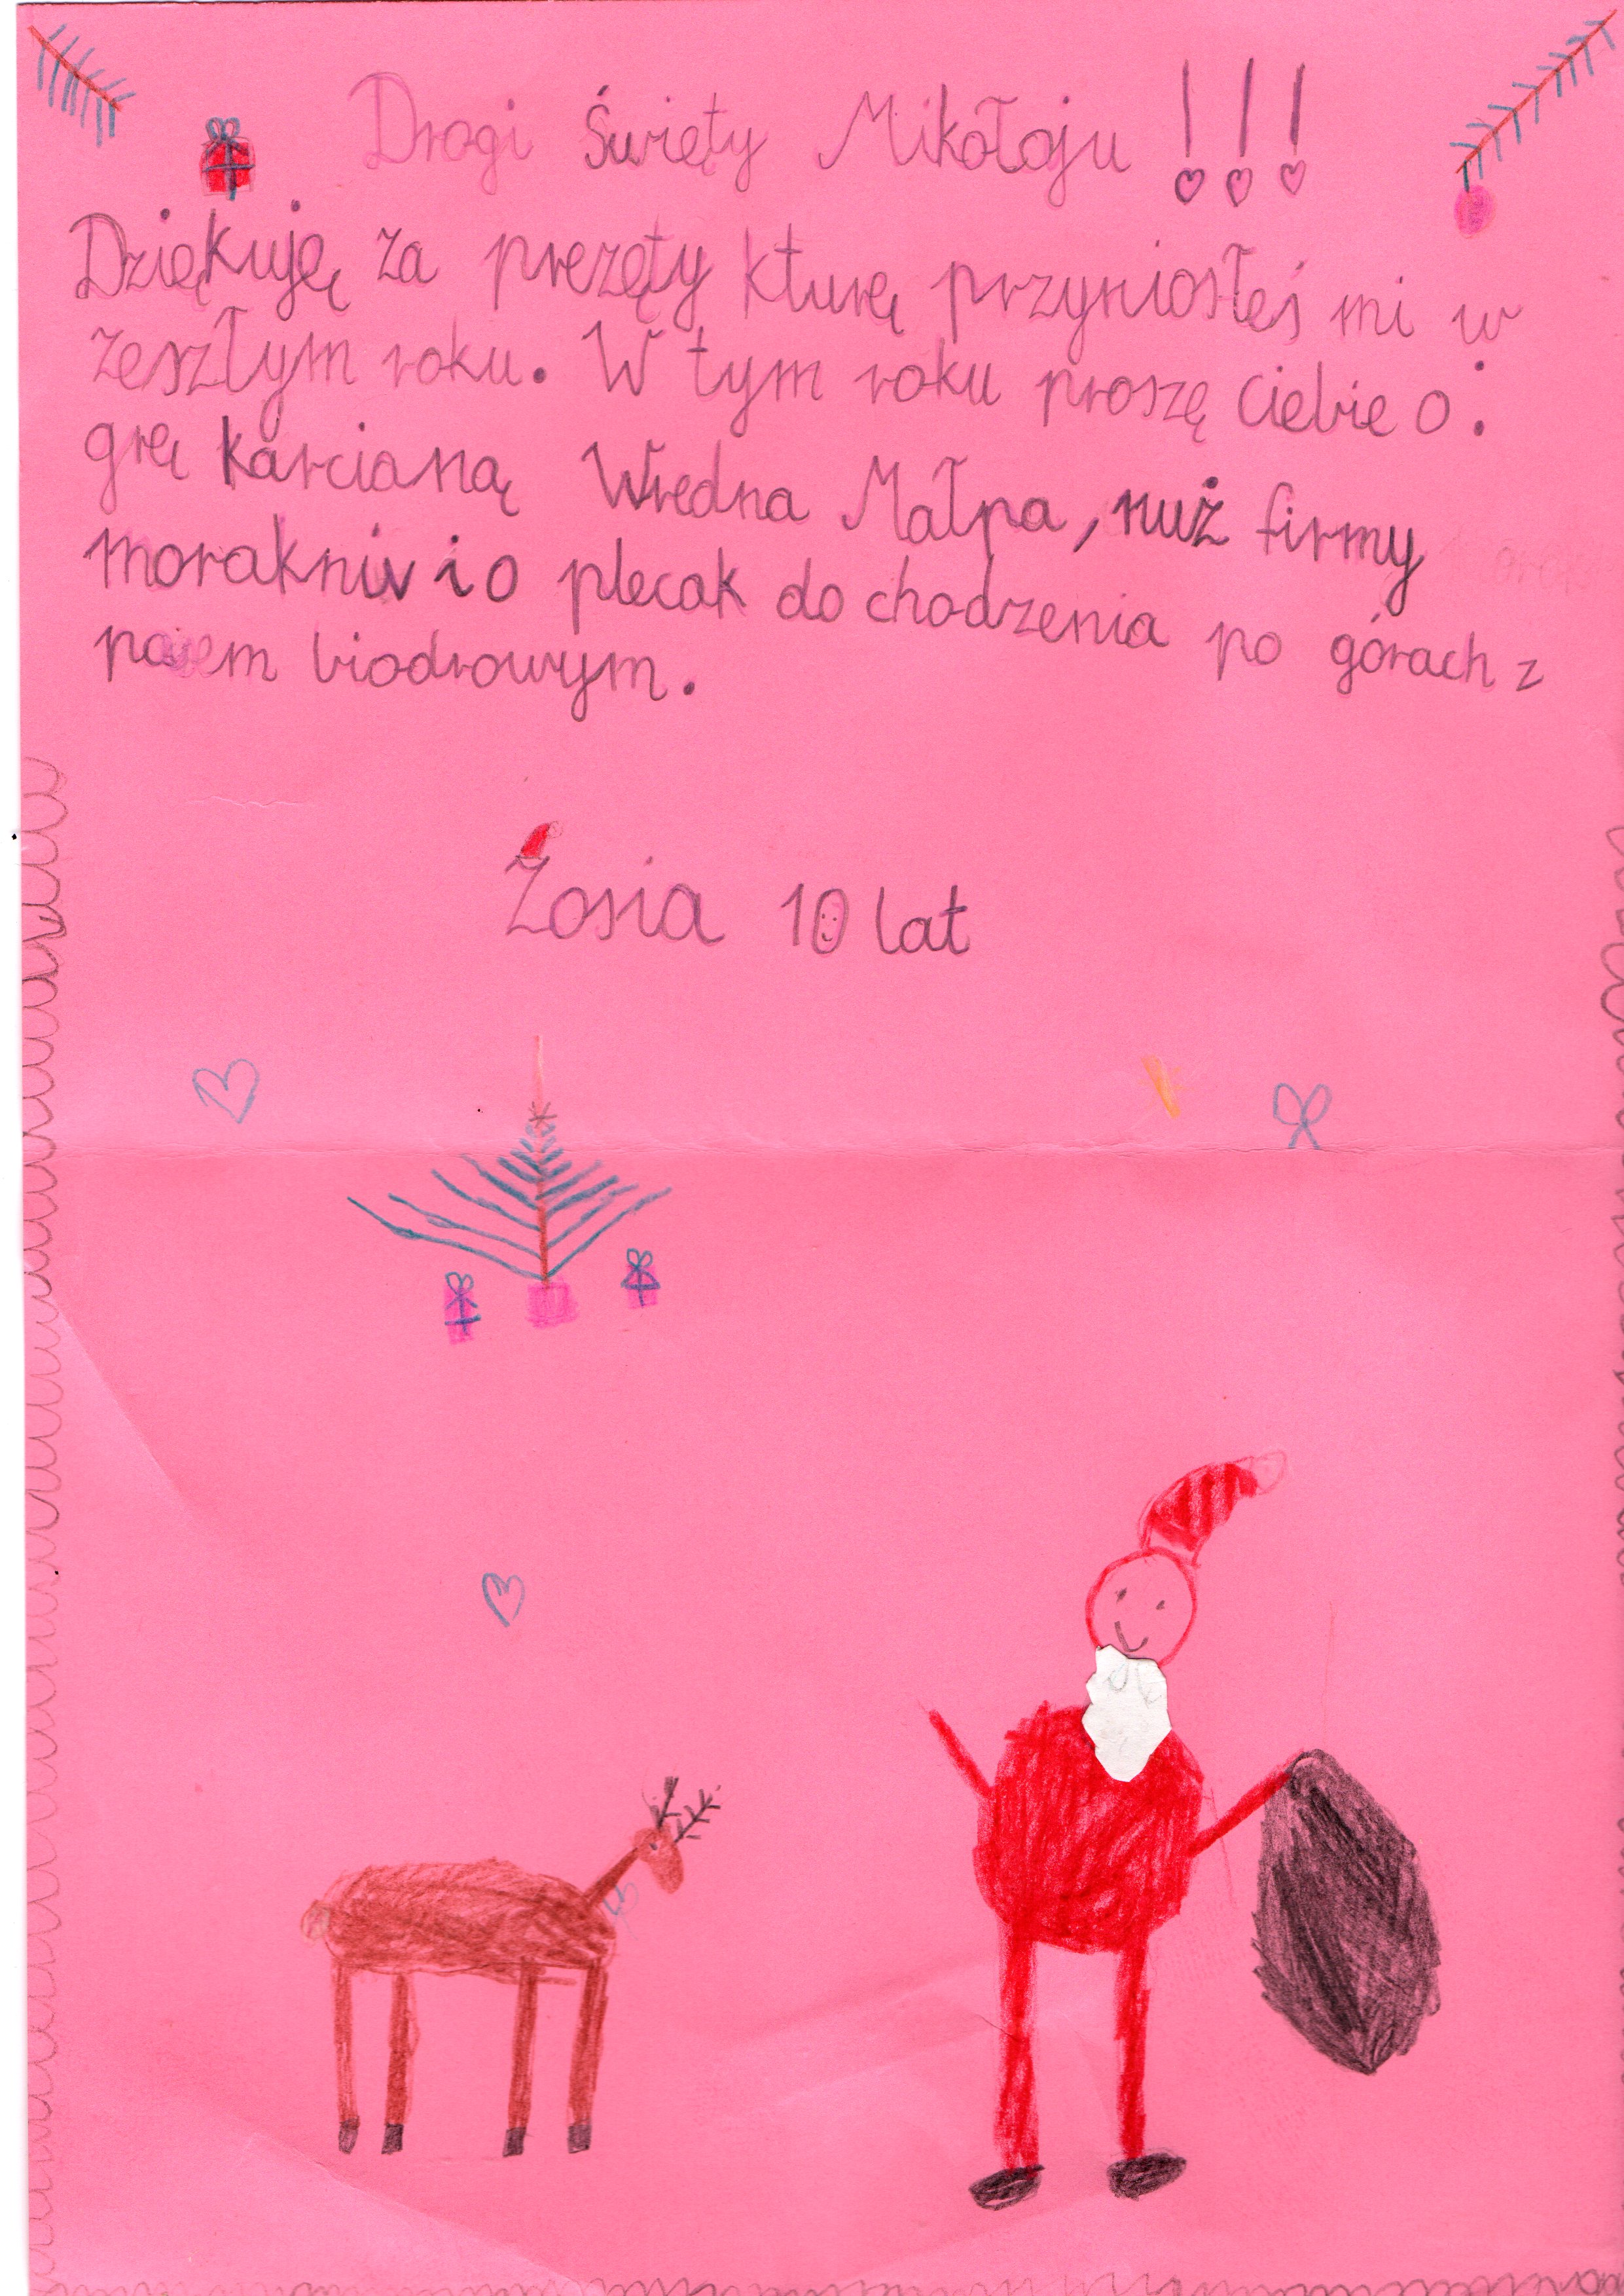 Drogi Święty Mikołaju !!!
Dziękuję za prezęty kturę przyniosłeś mi w
zeszłym roku. W tym roku proszę Ciebie o:
grę karcianą Wredna Małpa, nuż firmy
morakniv i o plecak do chodzenia po górach z
pasem biodrowym.
Zosia 10 lat